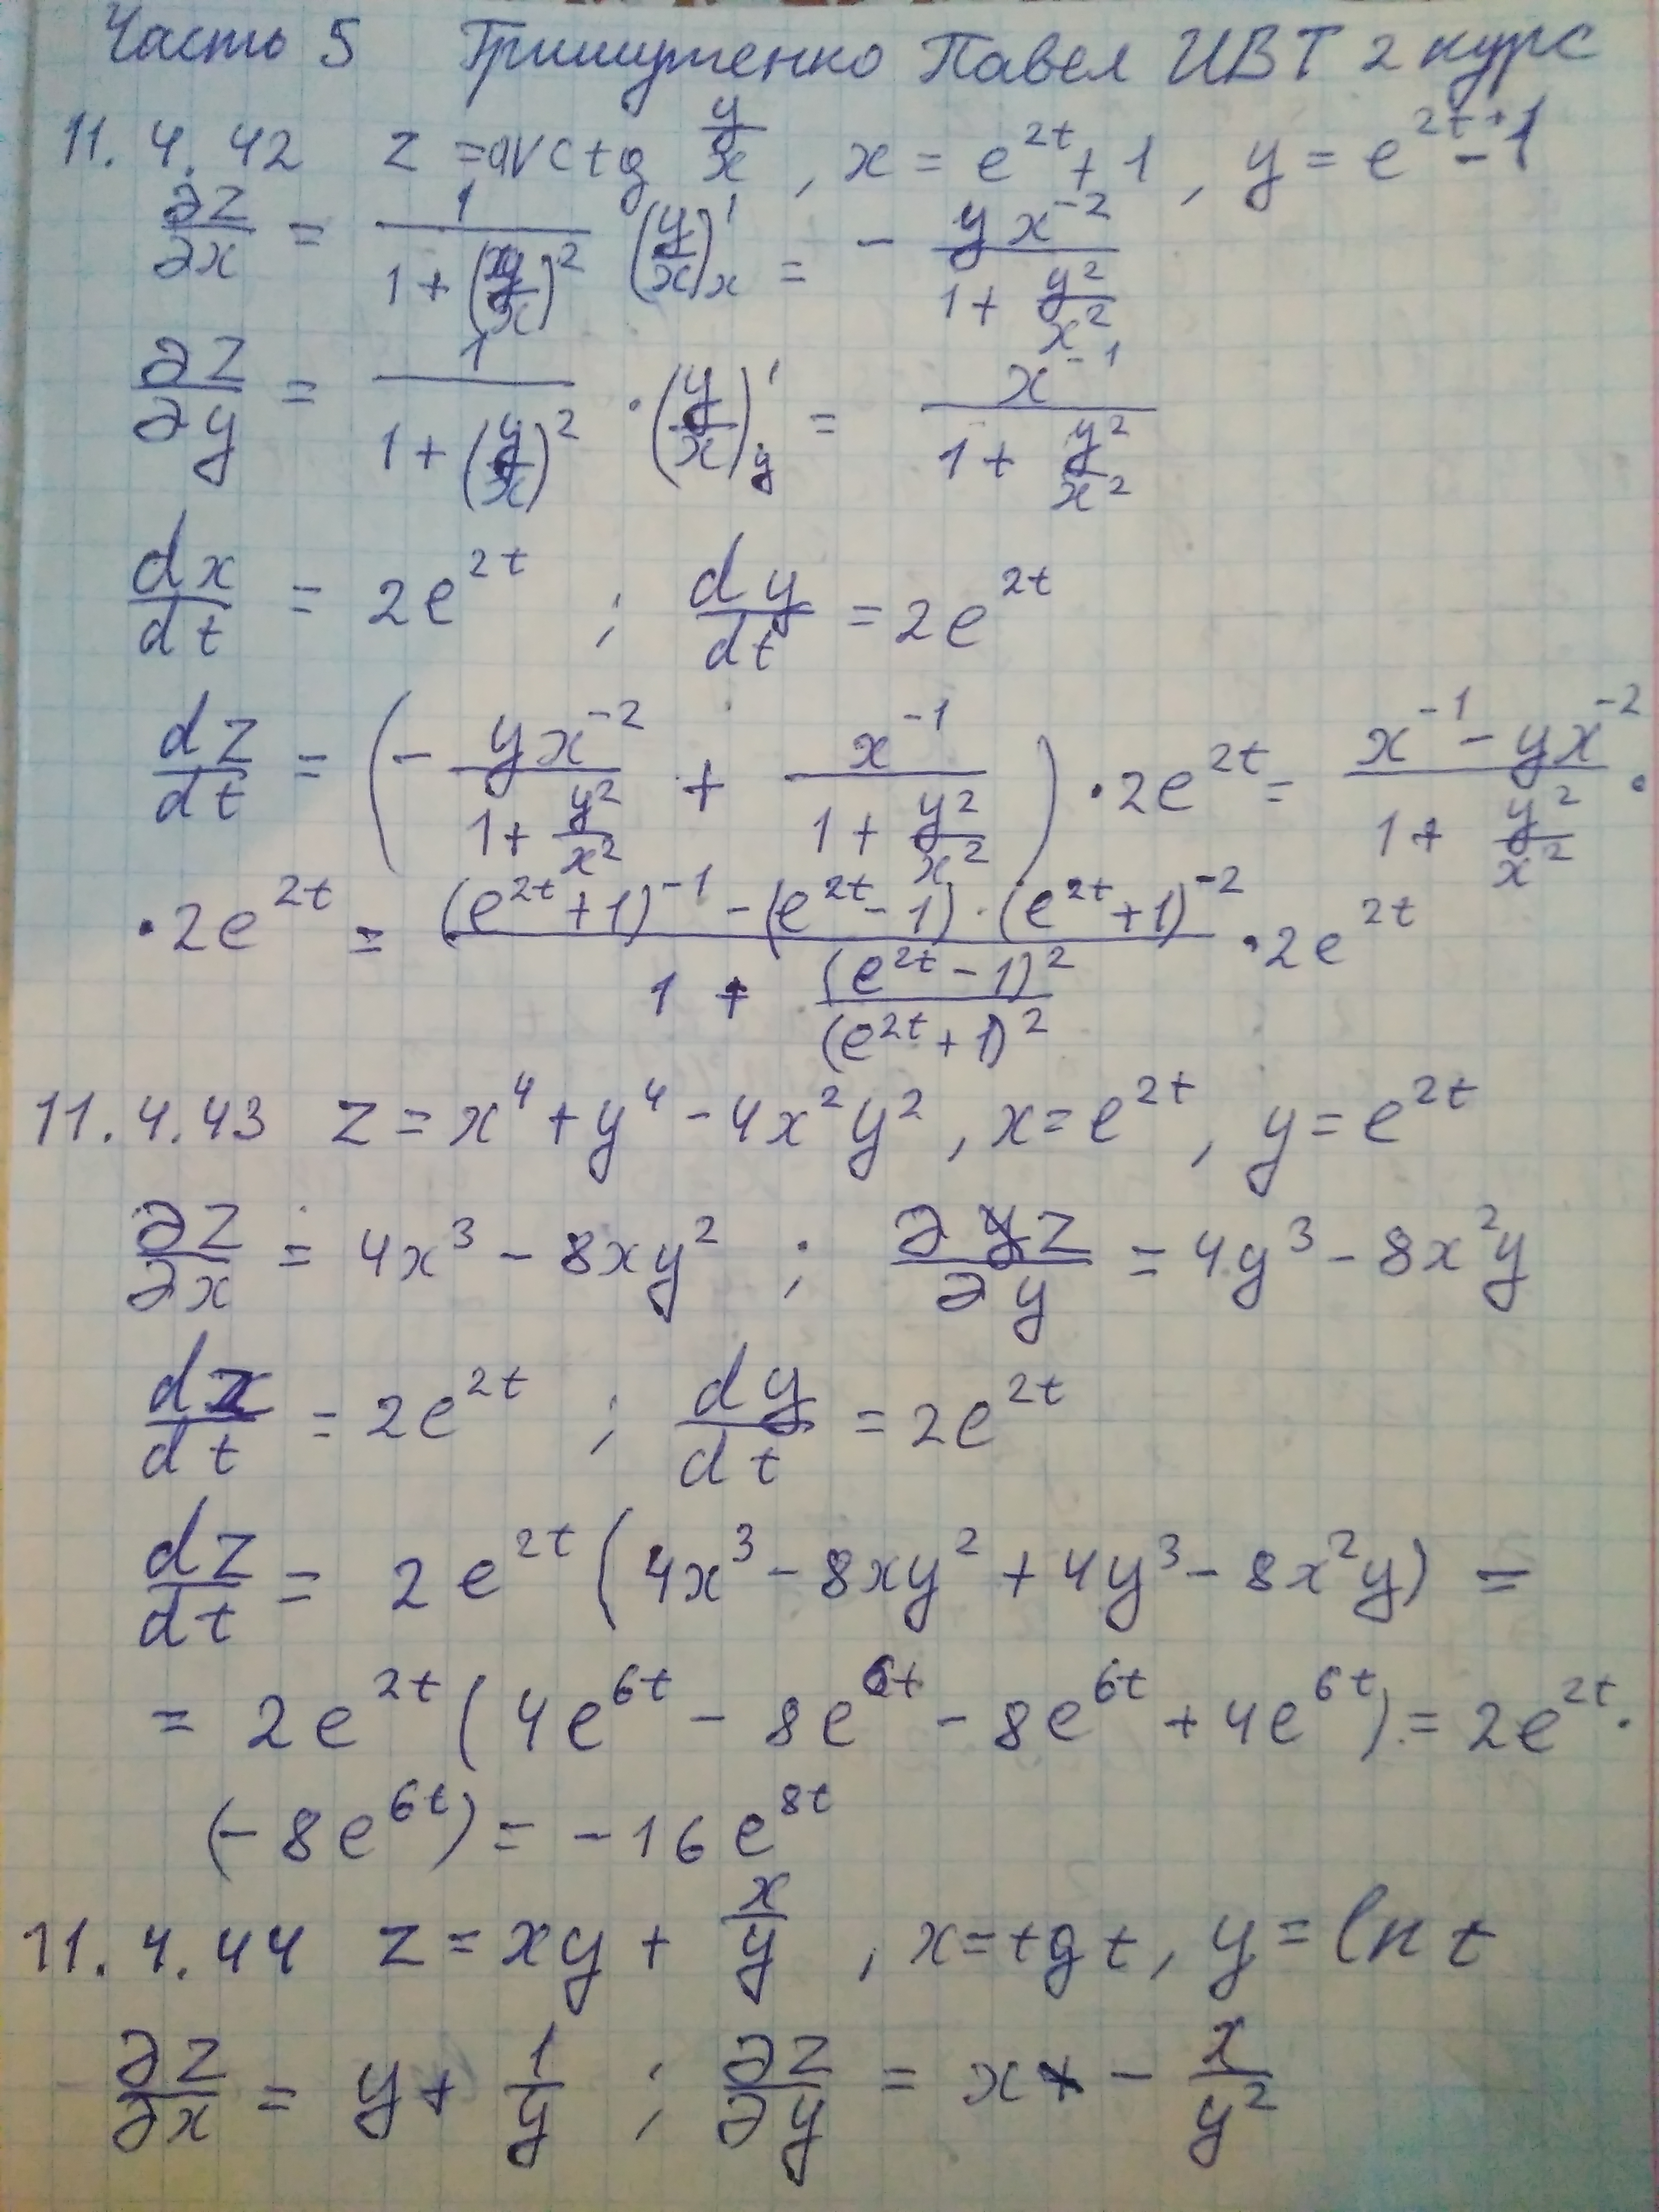 Часть 5 Гришутенко Павел ИВТ 2 курс
11.4.42 z = arctg y/x , x = e^{2t} + 1 , y = e^{2t} - 1
∂z/∂x = 1/(1 + (y/x)^2) (y/x)'_x = - yx^{-2}/(1 + y^2/x^2)
∂z/∂y = 1/(1 + (y/x)^2) · (y/x)'_y = x^{-1}/(1 + y^2/x^2)
dx/dt = 2e^{2t} ; dy/dt = 2e^{2t}
dz/dt = (- yx^{-2}/(1 + y^2/x^2) + x^{-1}/(1 + y^2/x^2)) · 2e^{2t} = (x^{-1} - yx^{-2})/(1 + y^2/x^2) ·
· 2e^{2t} = ((e^{2t} + 1)^{-1} - (e^{2t} - 1) · (e^{2t} + 1)^{-2})/(1 + (e^{2t} - 1)^2/(e^{2t} + 1)^2) · 2e^{2t}
11.4.43 z = x^4 + y^4 - 4x^2y^2 , x = e^{2t} , y = e^{2t}
∂z/∂x = 4x^3 - 8xy^2 ; ∂z/∂y = 4y^3 - 8x^2y
dx/dt = 2e^{2t} ; dy/dt = 2e^{2t}
dz/dt = 2e^{2t} (4x^3 - 8xy^2 + 4y^3 - 8x^2y) =
= 2e^{2t} (4e^{6t} - 8e^{6t} - 8e^{6t} + 4e^{6t}) = 2e^{2t} ·
(-8e^{6t}) = -16e^{8t}
11.4.44 z = xy + x/y , x = tg t , y = ln t
∂z/∂x = y + 1/y ; ∂z/∂y = x - x/y^2